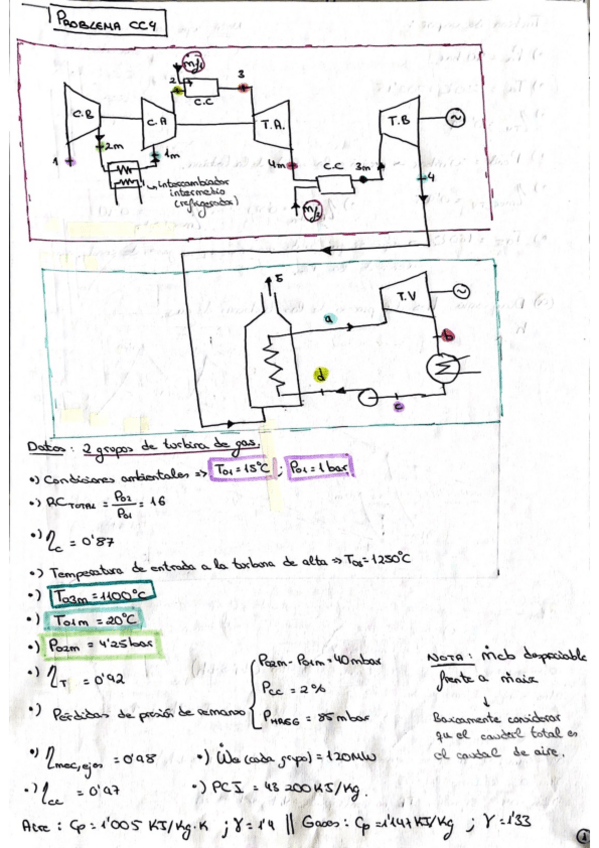 PROBLEMA CC4
m/f
2
3
C.C
C.B
C.A
T.A.
T.B
1
2m
1m
4m
C.C
3m
4
intercambiador
intermedio
(refrigerador)
m/f2
5
a
T.V
b
d
c
Datos: 2 grupos de turbina de gas.
•) Condiciones ambientales => T01 = 15°C ; P01 = 1 bar
•) RC TOTAL = P02/P01 = 16
•) ηc = 0'87
•) Temperatura de entrada a la turbina de alta => T03 = 1250°C
•) T03m = 1100°C
•) T01m = 20°C
•) P02m = 4'25 bar
•) ηT = 0'92
•) Pérdidas de presión de remanso { P02m - P01m = 40 mbar
Pcc = 2%
PHRSG = 85 mbar
NOTA: mcb despreciable
frente a maire
↓
Básicamente considerar
que el caudal total es
el caudal de aire.
•) ηmec,ejes = 0'98 •) Ẇe (cada grupo) = 120 MW
•) ηcc = 0'97 •) PCI = 43 200 KJ/Kg.
Aire: Cp = 1'005 KJ/Kg·K ; γ = 1'4 || Gases: Cp = 1'147 KJ/Kg ; γ = 1'33
1